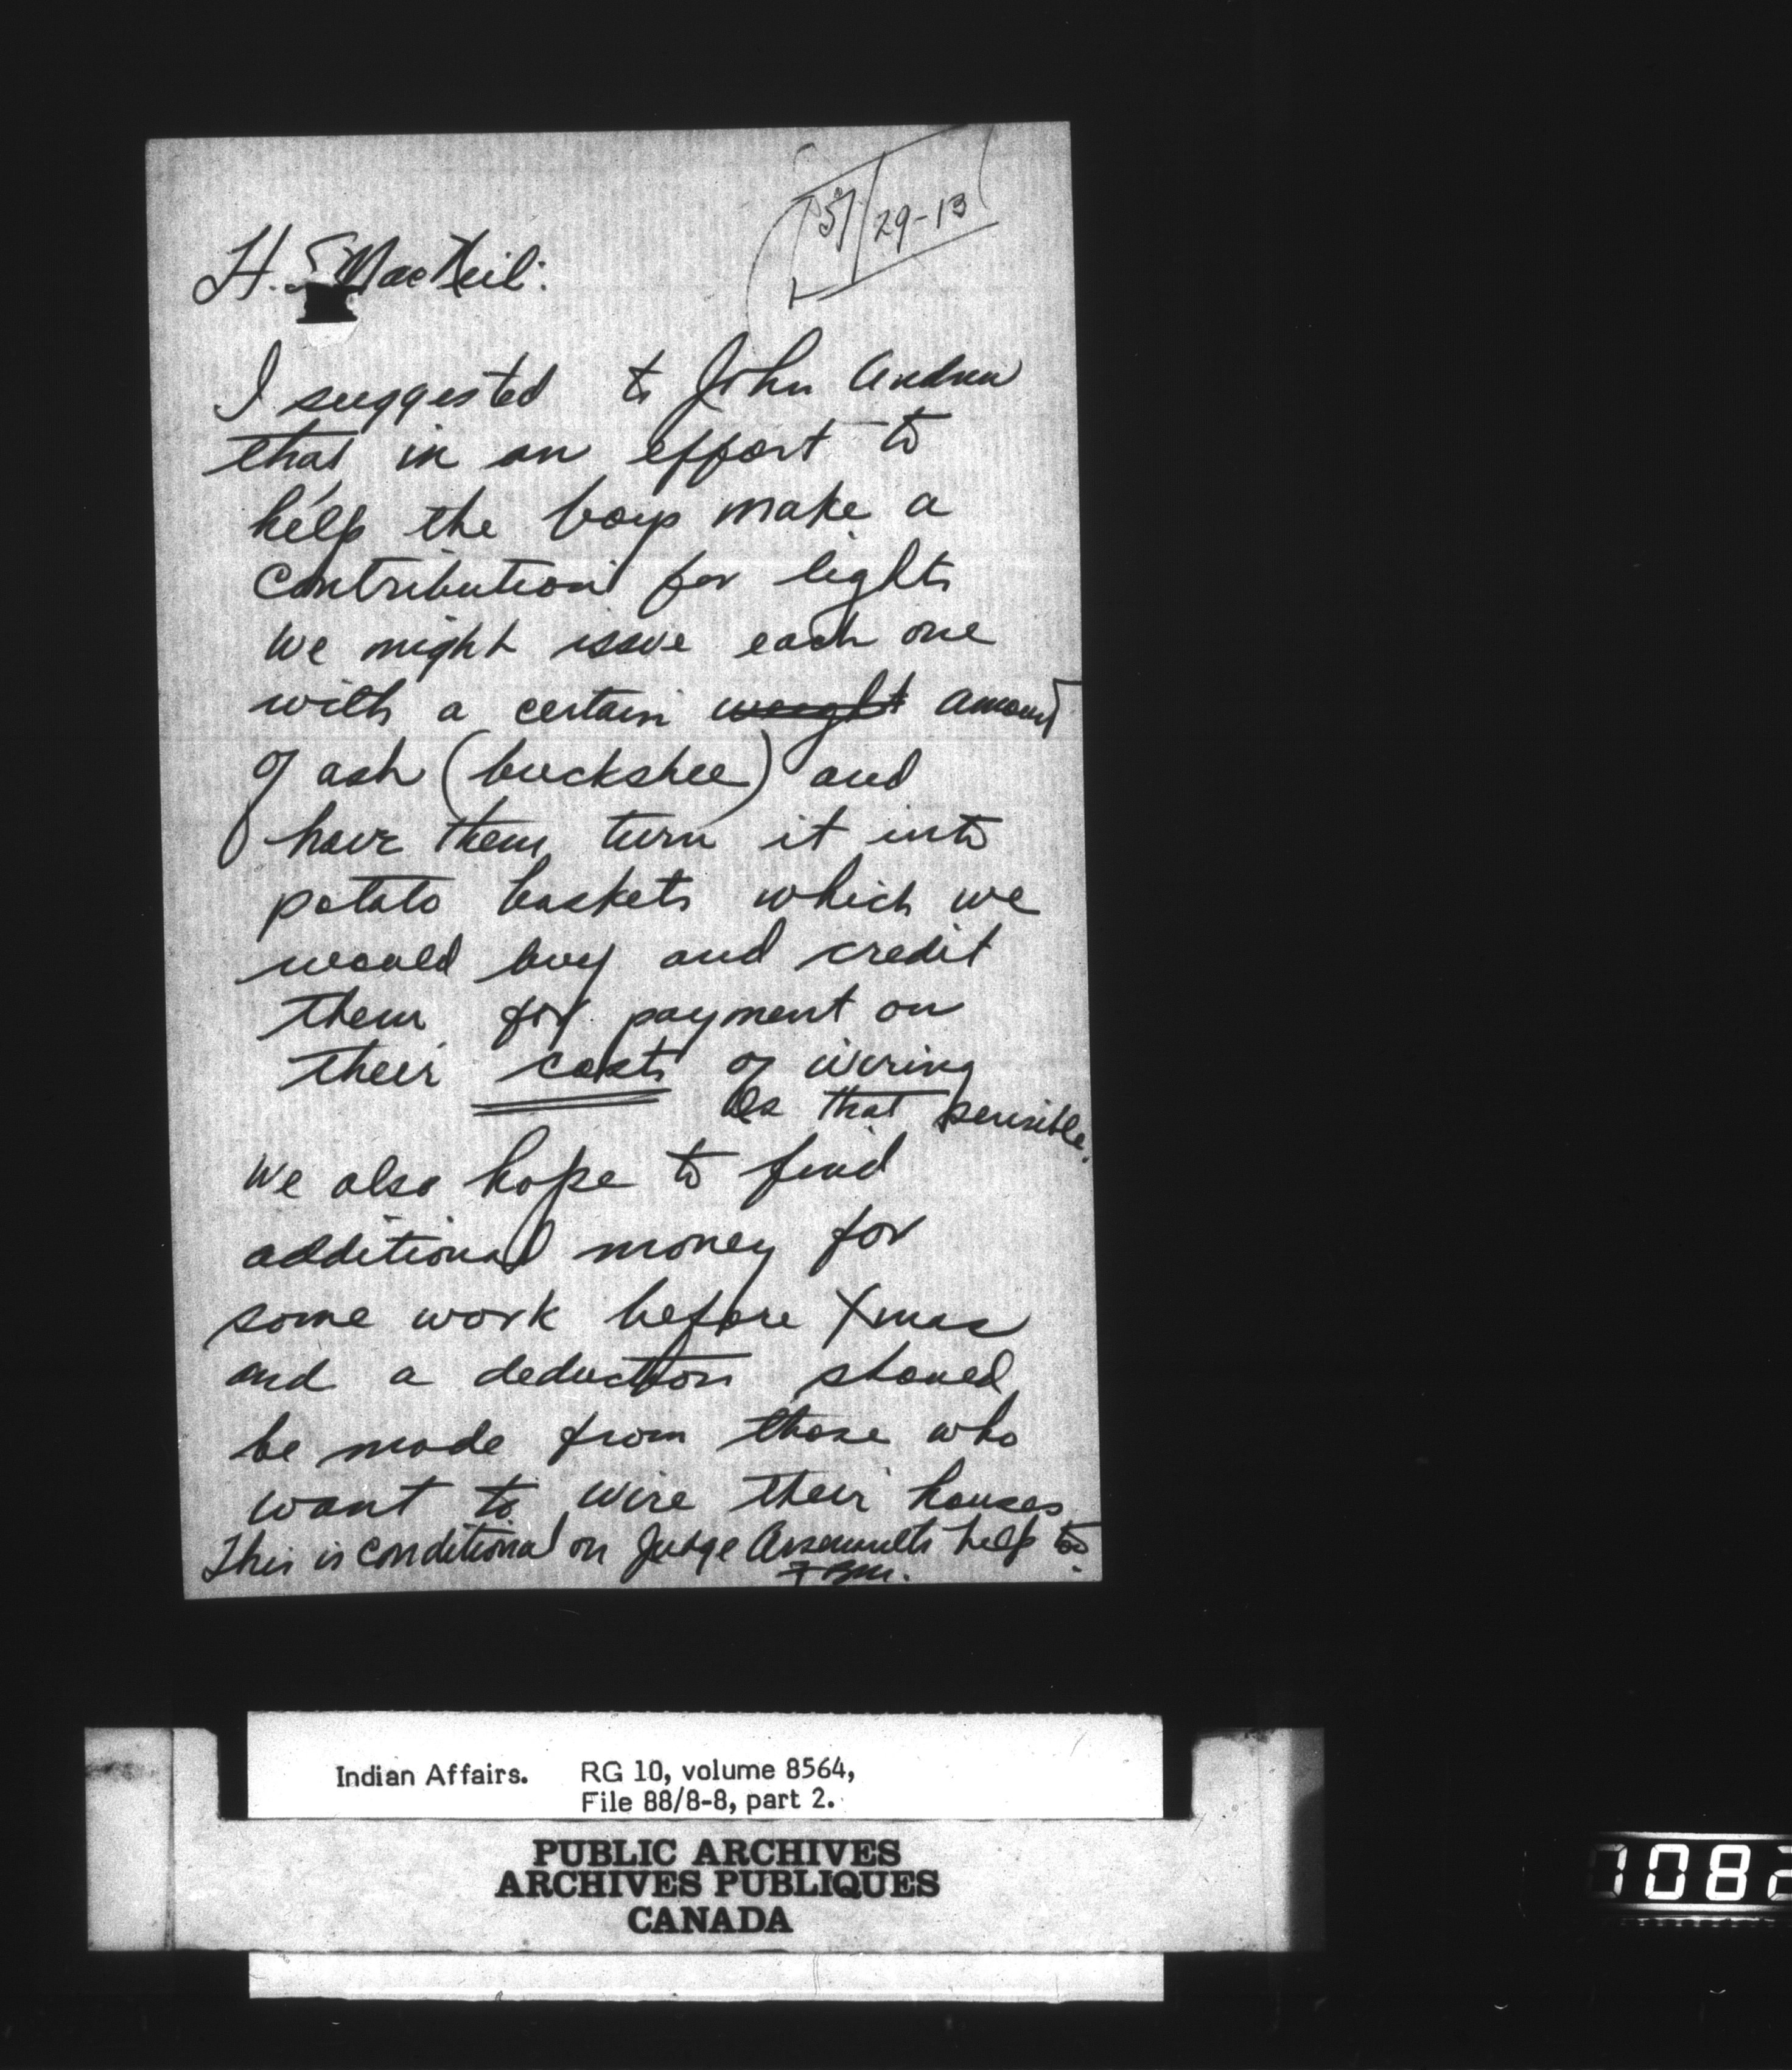 57/29-13
H. S. MacNeil:
I suggested to John Andrew
that in an effort to
help the boys make a
contribution for lights
we might issue each one
with a certain weight amount
of ash (buckshee) and
have them turn it into
potato baskets which we
would buy and credit
them for payment on
their costs of wiring
Is that sensible.
We also hope to find
additional money for
some work before Xmas
and a deduction should
be made from those who
want to wire their houses.
This is conditional on Judge Arsenaults help too.
Indian Affairs. RG 10, volume 8564,
File 88/8-8, part 2.
PUBLIC ARCHIVES
ARCHIVES PUBLIQUES
CANADA
1082